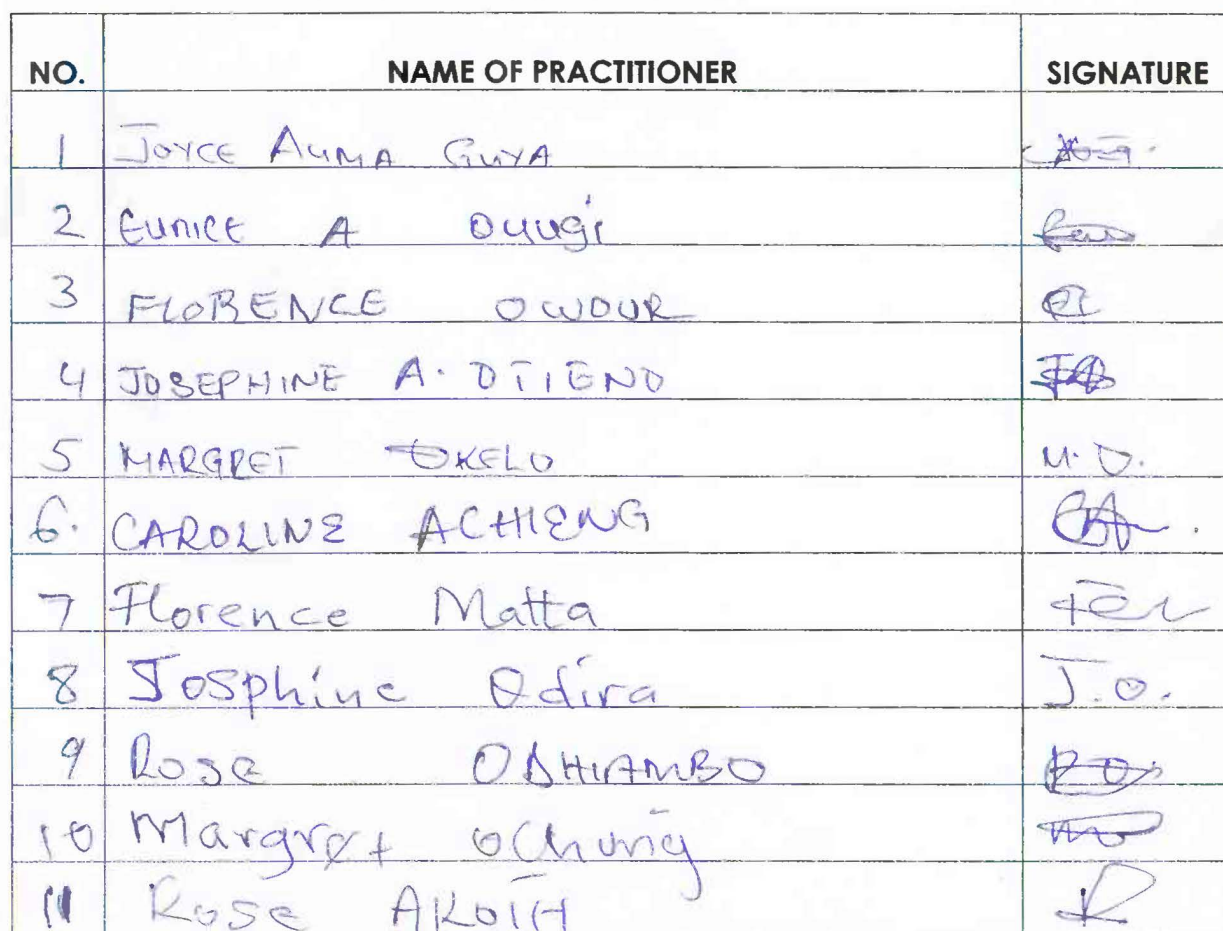 NO. NAME OF PRACTITIONER SIGNATURE
1 JOYCE AUMA GUYA
2 Eunice A Ouugi
3 FLORENCE OWOUR
4 JOSEPHINE A. OTIENO
5 MARGRET OKELO M.O.
6. CAROLINE ACHIENG
7 Florence Matta
8 Josphine Odira J.O.
9 Rose ODHIAMBO
10 Margret Ochung
11 Rose AKOTH